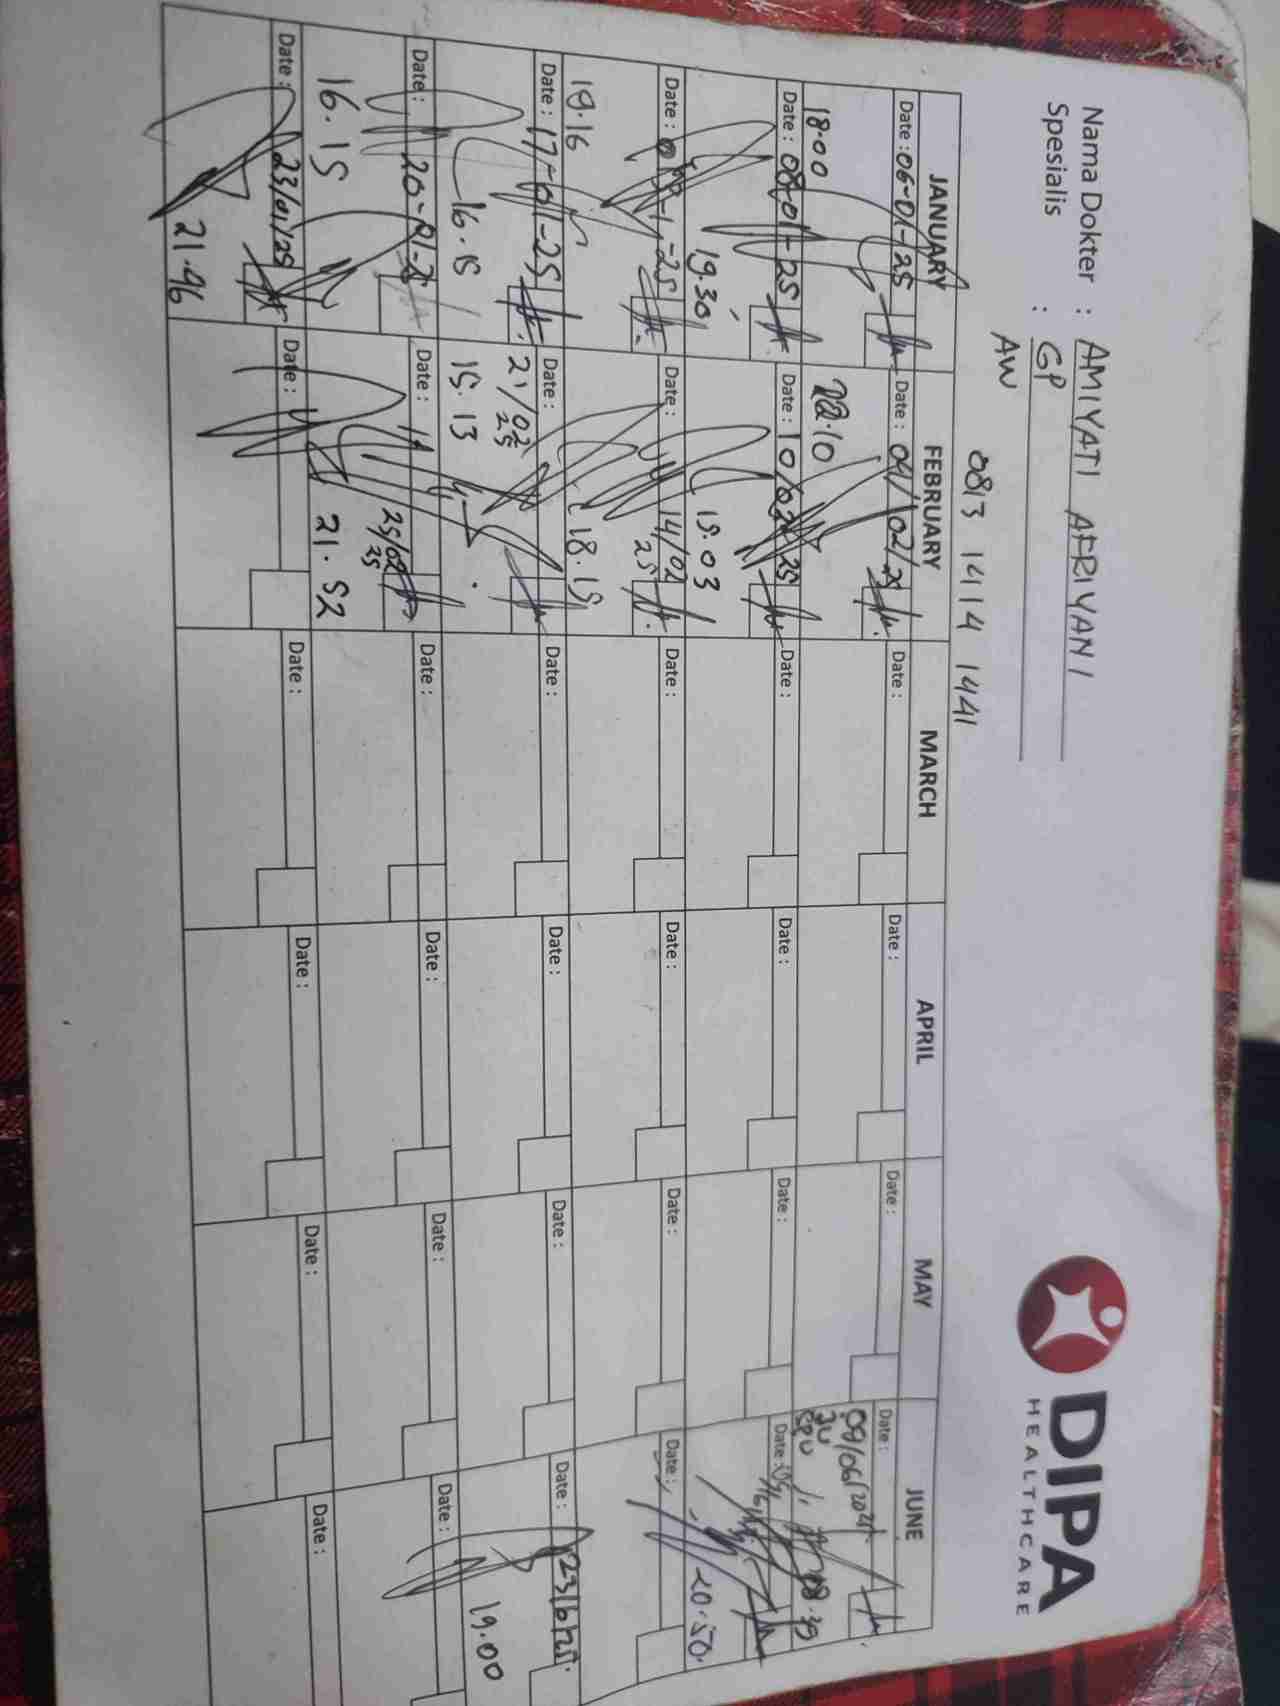 Nama Dokter : AMIYATI AFRIYANI
Spesialis : GP
AW
0813 1414 1441
DIPA
HEALTHCARE
JANUARY FEBRUARY MARCH APRIL MAY JUNE
Date : 06-01-25 Date : 04/02/25 Date : Date : Date : Date :
09/06/2025
18.00 22.10 08.39
Date : 08-01-25 Date : 10/02/25 Date : Date : Date : Date :
19.30 19.03 20.50.
Date : Date : 14/02 25 Date : Date : Date : Date :
19.16 18.15
Date : 17-01-25 Date : 21/02 25 Date : Date : Date : Date : 23/6/25.
16.15 15.13 19.00
Date : 20-01-25 Date : 25/02 25 Date : Date : Date : Date :
16.15 21.52
Date : 23/01/25 Date : Date : Date : Date : Date :
21.46